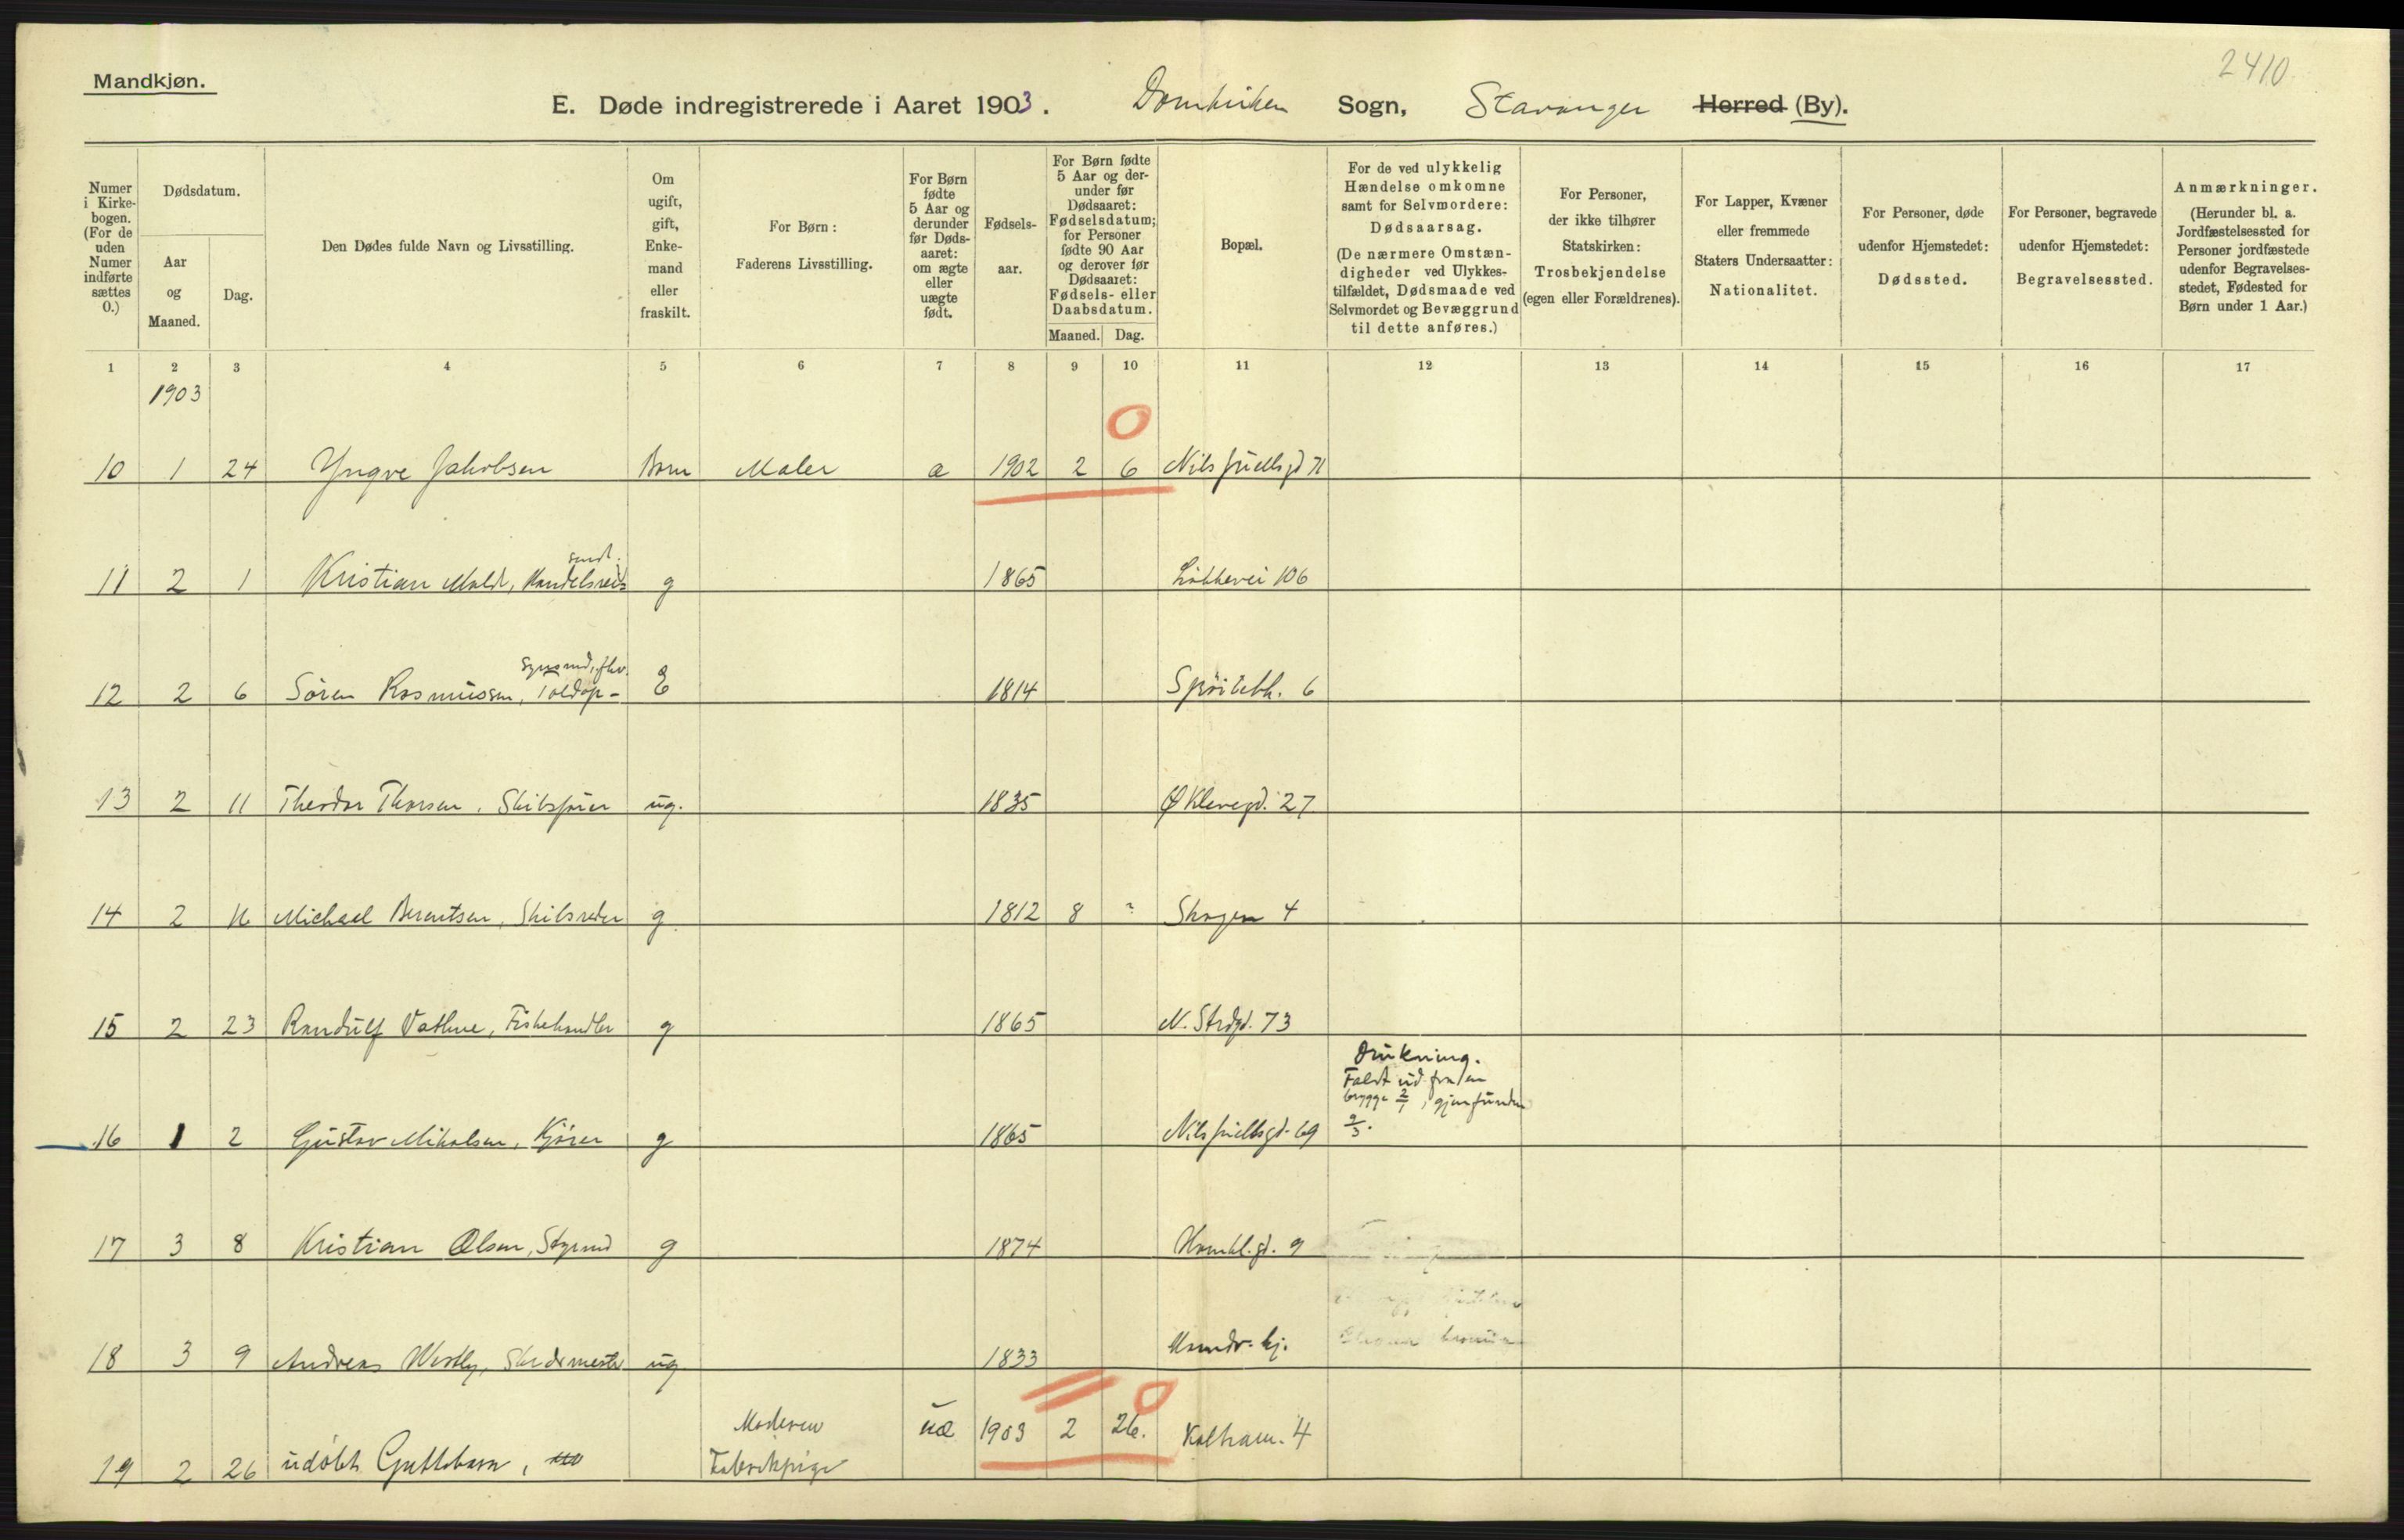 2410
Mandkjøn.
E. Døde indregistrerede i Aaret 1903. Domkirken Sogn, Stavanger Herred (By).
Numer i Kirkebogen. (For de uden Numer indførte sættes 0.)
Dødsdatum.
Aar og Maaned.
Dag.
Den Dødes fulde Navn og Livsstilling.
Om ugift, gift, Enkemand eller fraskilt.
For Børn: Faderens Livsstilling.
For Børn fødte 5 Aar og derunder før Dødsaaret: om ægte eller uægte født.
Fødselsaar.
For Børn fødte 5 Aar og derunder før Dødsaaret: Fødselsdatum; for Personer fødte 90 Aar og derover før Dødsaaret: Fødsels- eller Daabsdatum.
Maaned. Dag.
Bopæl.
For de ved ulykkelig Hændelse omkomne samt for Selvmordere: Dødsaarsag. (De nærmere Omstændigheder ved Ulykkestilfældet, Dødsmaade ved Selvmordet og Bevæggrund til dette anføres.)
For Personer, der ikke tilhører Statskirken: Trosbekjendelse (egen eller Forældrenes).
For Lapper, Kvæner eller fremmede Staters Undersaatter: Nationalitet.
For Personer, døde udenfor Hjemstedet: Dødssted.
For Personer, begravede udenfor Hjemstedet: Begravelsessted.
Anmærkninger. (Herunder bl. a. Jordfæstelsessted for Personer jordfæstede udenfor Begravelsesstedet, Fødested for Børn under 1 Aar.)
1 2 3 4 5 6 7 8 9 10 11 12 13 14 15 16 17
1903
0
10 1 24 Yngve Jakobsen Barn Maler æ 1902 2 6 Nils Juelsgd 71
11 2 1 Kristian Malde, Handelsreisend. g 1865 Løkkevei 106
12 2 6 Sören Rasmussen, Toldopsynsmd, fhv. E 1814 6
13 2 11 Theodor Thorsen, Skibsfører ug. 1835 Ø Klevegd. 27
14 2 Michael Berentsen, Skibsreder g 1812 8 ? Skagen 4
15 2 23 Randulf Vathne, Fiskehandler g 1865 N. Strdgd. 73
Drukning.
Faldt ud fra en
brygge 2/1, gjenfunden
16 1 2 Gustav Mikalsen, Kjører g 1865 Nils Juelsgd. 69
17 3 8 Kristian Olsen, Styrmd g 1874 9
18 3 9 Andreas Westly, ug 1833
0
19 2 26 udøbt Guttebarn, Moderen Fabrikpige uæ 1903 2 26. 4